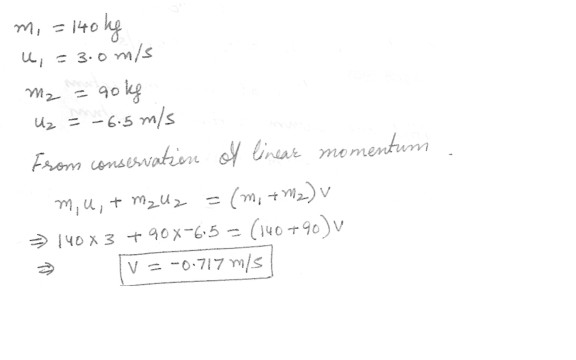 m₁ = 140 kg
u₁ = 3.0 m/s
m₂ = 90 kg
u₂ = -6.5 m/s
From conservation of linear momentum.
m₁u₁ + m₂u₂ = (m₁ + m₂)v
⇒ 140 x 3 + 90 x -6.5 = (140 + 90)v
⇒ v = -0.717 m/s